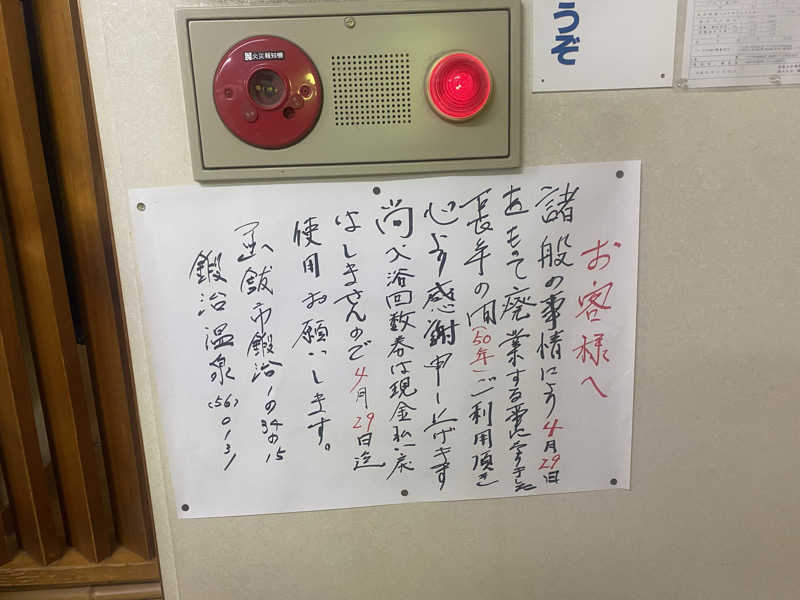 火災報知機
うぞ
お客様へ
諸般の事情により4月29日
をもって廃業する事になりました
長年の間(50年)ご利用頂き
心より感謝申し上げます
尚入浴回数券は現金払い戻
はしませんので4月29日迄
使用お願いします。
函館市鍛治1の34の15
鍛治温泉(56)0131